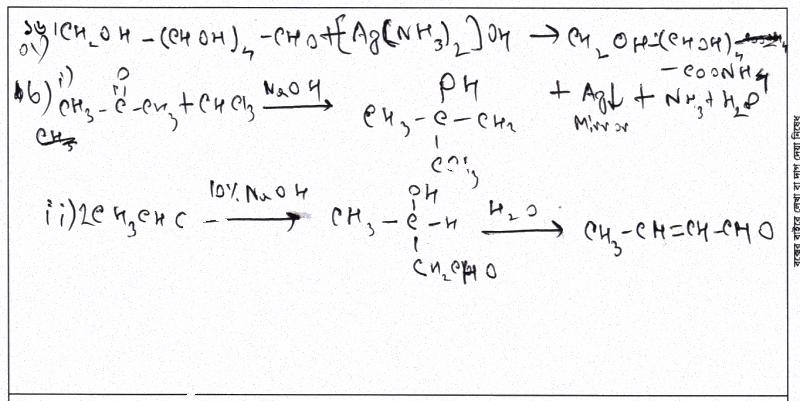 CH2OH-(CHOH)4-CHO+[Ag(NH3)2]OH → CH2OH-(CHOH)4
-COONH4
+ Ag↓ + NH3+H2O
Mirror
b) i) CH3-C-CH3+CHCl3 NaOH →
O
OH
CH3-C-CH3
CCl3
ii) 2CH3CHO 10% NaOH →
OH
CH3-C-H
CH2CHO
H2O → CH3-CH=CH-CHO
বক্সের বাইরে লেখা বা দাগ দেয়া নিষেধ